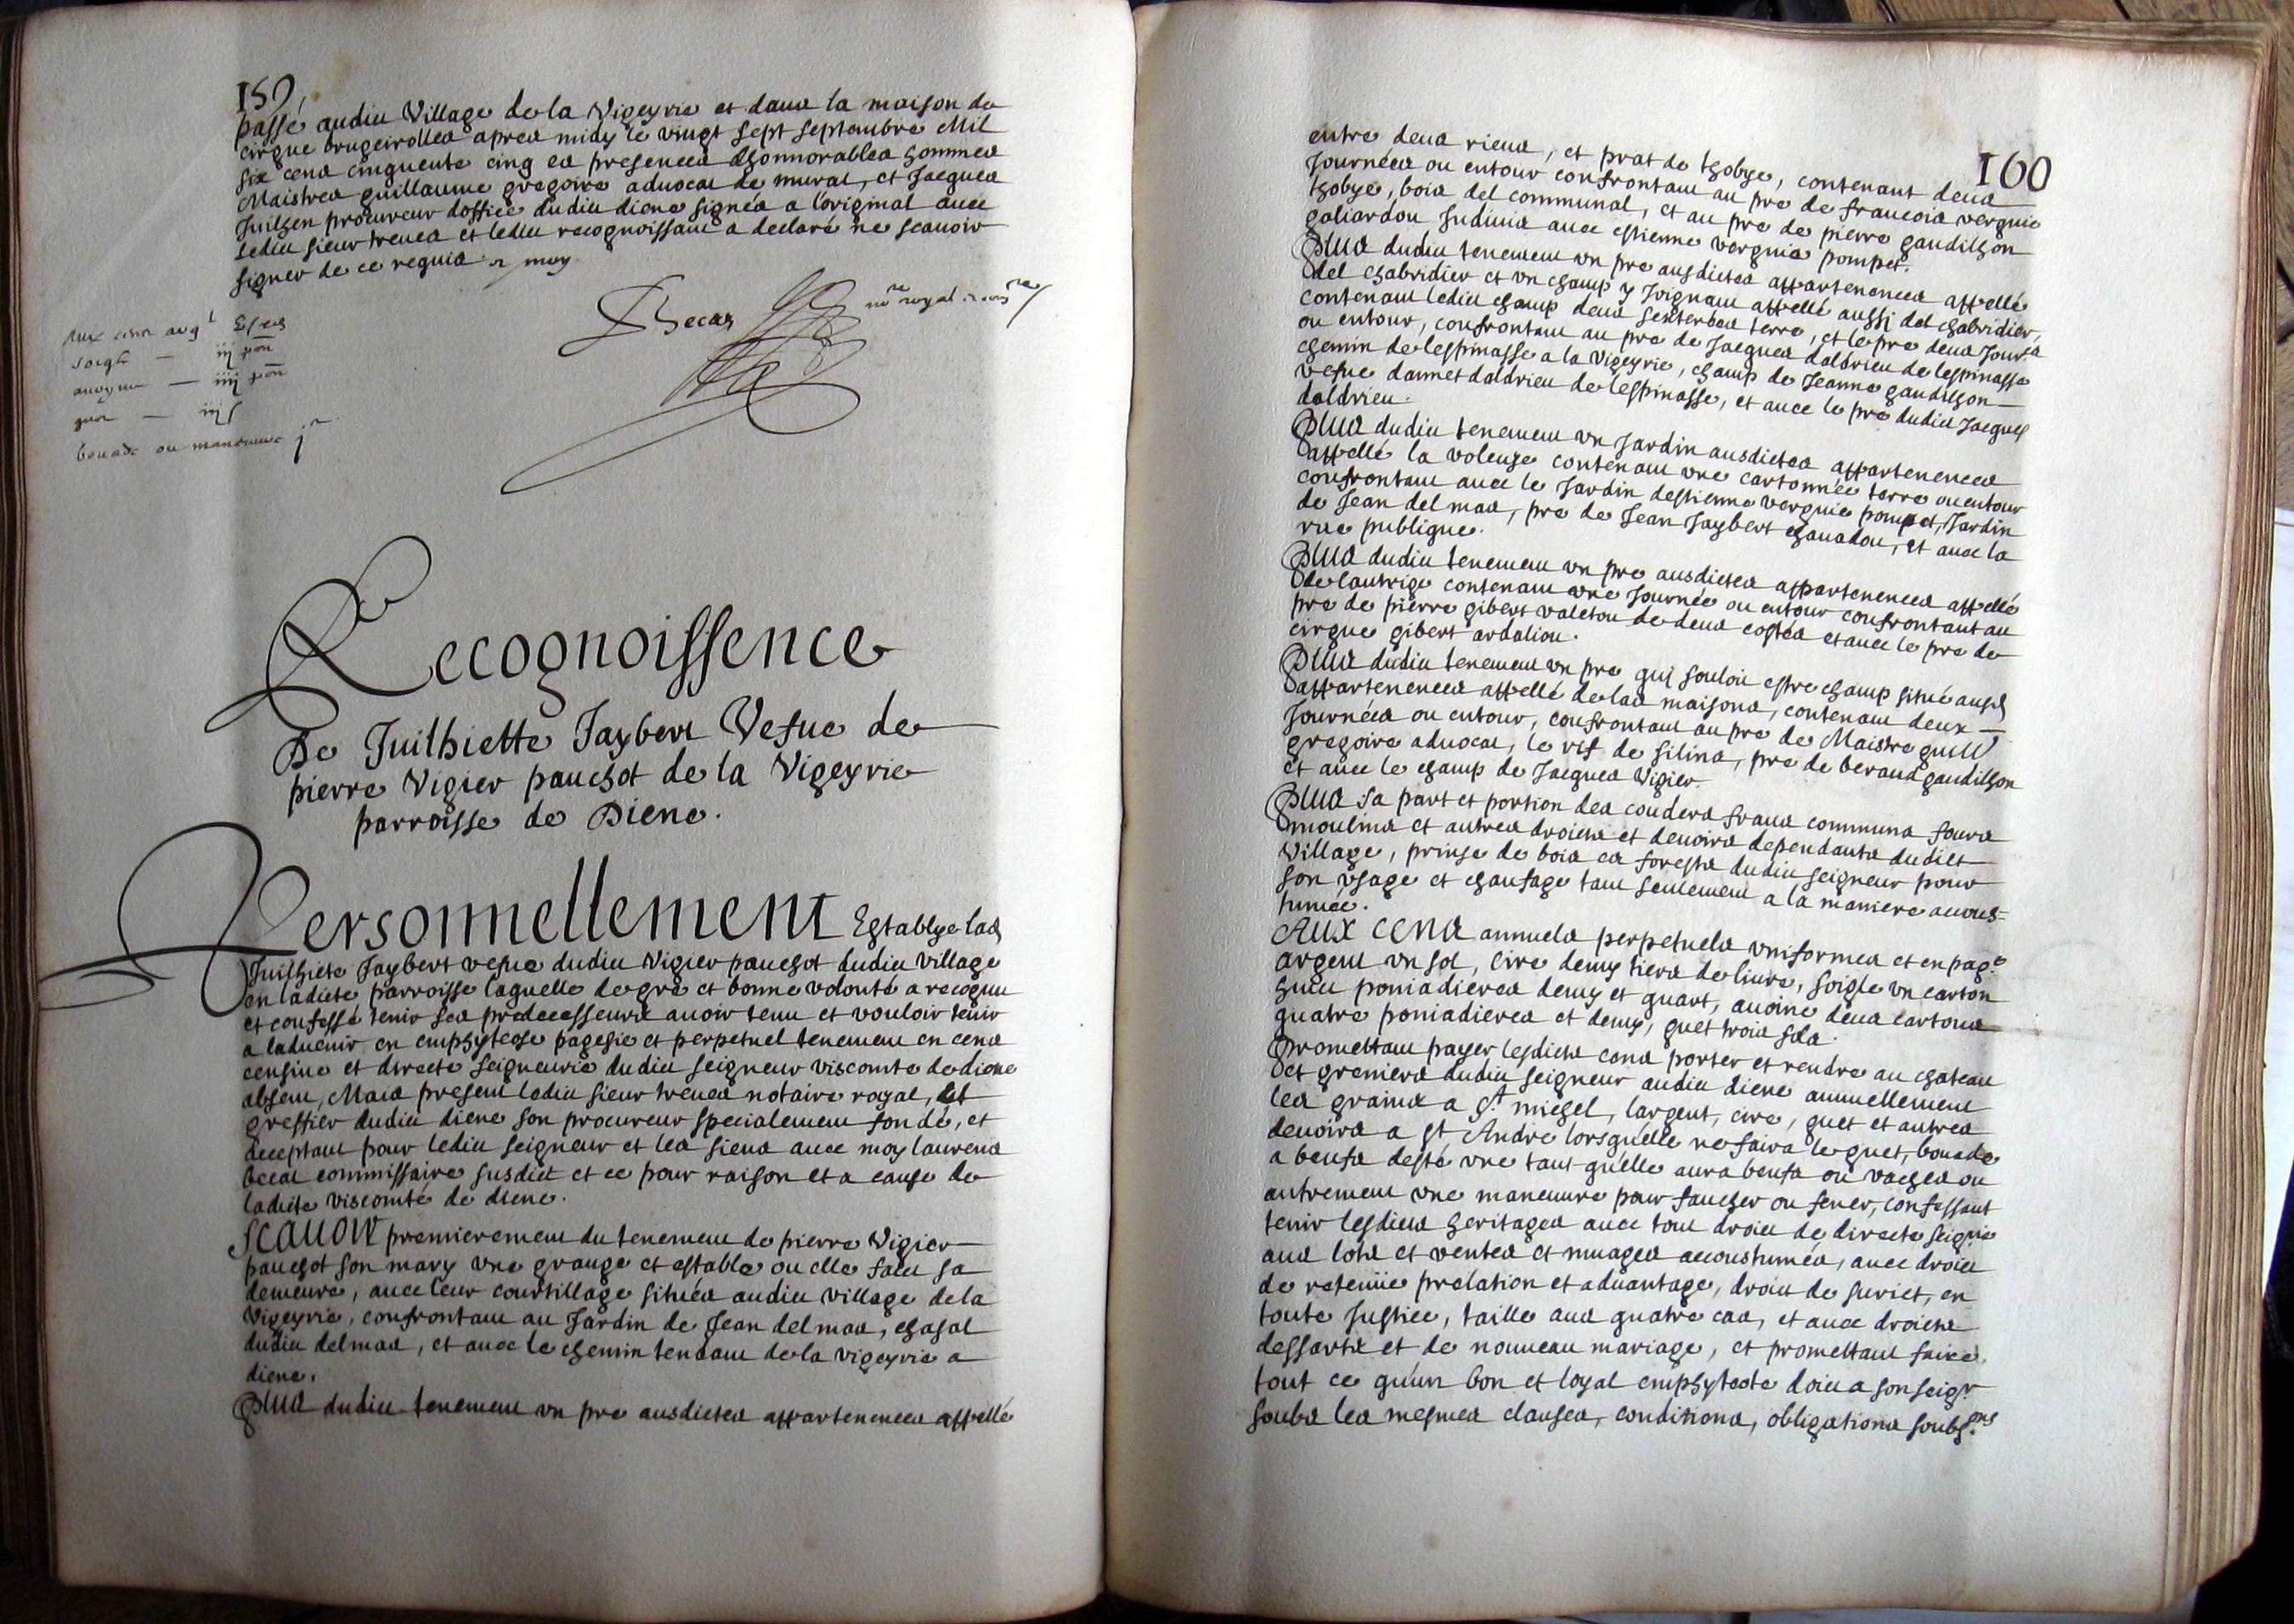 159
passé audict Village de la Vigeyrie et dans la maison de
cirgue brugeirolles apres midy le vingt sept septembre Mil
six cens cinquente cinq es presences dhonnorables hommes
Maistres guillaume gregoire advocat de murat, et Jacques
Juilhen procureur doffice dudict diene signés a loriginal avec
ledict sieur treves et ledict recognoissant a declaré ne scavoir
signer de ce requis et moy
Becat nore royal
Aux cens argt
soigle — iij pon
avoyne — iiij pon
guet — iij s
bouade ou manœuvre j
Recognoissence
De Juilhiette Jaybert Vefue de
pierre Vigier pauchot de la Vigeyrie
parroisse de Diene.
Personnellement Establye lad
Juilhiete Jaybert vefue dudict Vigier pauchot dudict village
en ladicte parroisse laquelle de gré et bonne volonté a recognu
et confessé tenir ses predecesseurs avoir tenu et vouloir tenir
a ladvenir en emphyteose pagesie et perpetuel tenement en cens
censive et directe seigneurie dudict seigneur viscomte de diene
absent, Mais present ledict sieur treves notaire royal, Et
greffier dudict diene son procureur specialement fondé, et
acceptant pour ledict seigneur et les siens avec moy laurens
becat commissaire susdict et ce pour raison et a cause de
ladicte viscomté de diene.
SCAVOIR premierement du tenement de pierre Vigier
pauchot son mary une grange et estable ou elle faict sa
demeure, avec leur courtillage situés audict village de la
Vigeyrie, confrontant au Jardin de Jean del mas, chasal
dudict delmas, et avec le chemin tendant de la vigeyrie a
diene.
Plus dudict tenement un pre ausdictes appartenences appellé
160
entre deus rieus, et prat de thobye, contenant deus
Journées ou entour confrontant au pre de francois vergnie
thobye, bois del communal, et au pre de pierre gandilhon
galiardou Indivis avec estienne vergnie pompet.
Plus dudict tenement un pre ausdictes appartenences appellé
del chabridier et un champ y Joignant appellé aussi del chabridier,
contenant ledict champ deus sesterées terre, et le pre deus Journs
ou entour, confrontant au pre de Jacques daldrieu de lespinasse
chemin de lespinasse a la Vigeyrie, champ de Jeanne gandilhon
vefue dannet daldrieu de lespinasse, et avec le pre dudict Jacques
daldrieu.
Plus dudict tenement un Jardin ausdictes appartenences
appellé la voleuge contenant une cartonnée terre ou entour
confrontant avec le Jardin destienne vergnie pompet, Jardin
de Jean del mas, pre de Jean Jaybert chanadou, et avec la
rue publique.
Plus dudict tenement un pre ausdictes appartenences appellé
de lautrige contenant une Journée ou entour confrontant au
pre de pierre gibert valetou de deus costés et avec le pre de
cirgue gibert ardaliou.
Plus dudict tenement un pre quj souloit estre champ situé ausd
appartenences appellé de las maisons, contenant deux
Journées ou entour, confrontant au pre de Maistre guill
gregoire advocat, le rif de silins, pre de beraud gandilhon
et avec le champ de Jacques Vigier.
Plus sa part et portion des couders fraus communs fours
moulins et autres droicts et devoirs dependants dudict
Village, prinse de bois es forests dudict seigneur pour
son usage et chaufage tant seulement a la maniere acous=
tumée.
AUX CENS annuels perpetuels uniformes et en page
argent un sol, cire demy tiers de livre, soigle un carton
huict poniadieres demy et quart, avoine deus cartons
quatre poniadieres et demy, guet trois sols.
Promettant payer lesdicts cens porter et rendre au chateau
et greniers dudict seigneur audict diene annuellement
les grains a St michel, largent, cire, guet et autres
devoirs a St André lorsquelle ne faira le guet, bouade
a beufs desté une tant quelle aura beufs ou vaches ou
autrement une manœuvre pour faucher ou fener, confessant
tenir lesdicts heritages avec tout droict de directe seignie
aus lots et ventes et muages accoustumés, avec droict
de retenüe prelation et advantage, droict de surict, en
toute Justice, taille aus quatre cas, et avec droicts
dessarts et de nouveau mariage, et promettant faire
tout ce quun bon et loyal emphyteote doict a son seigr
soubs les mesmes clauses, conditions, obligations soubsons